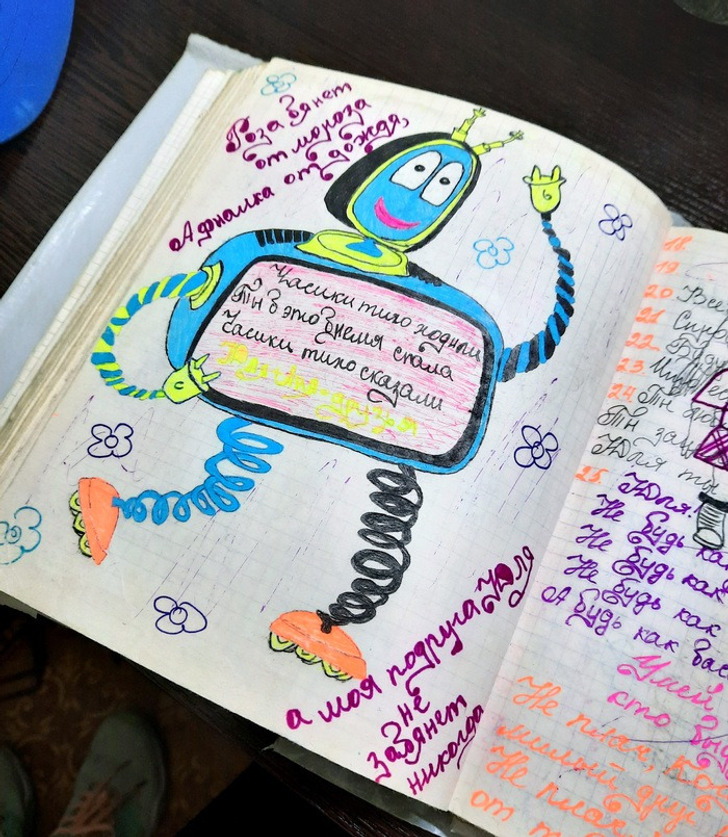 Роза вянет
от мороза
А фиалка от дождя,
Часики тихо ходили
Ты в это время спала
Часики тихо сказали
Юля + Аня = друзья
а моя подруга Юля
не
завянет
никогда
18
19
20 Все
21
22
23
24 Ты
Ты
Юля ты
25 Юля!
Не будь как
Не будь как
Не будь как
А будь как вас
Умей
кто
Не плач,
милый друг
Не плач
от